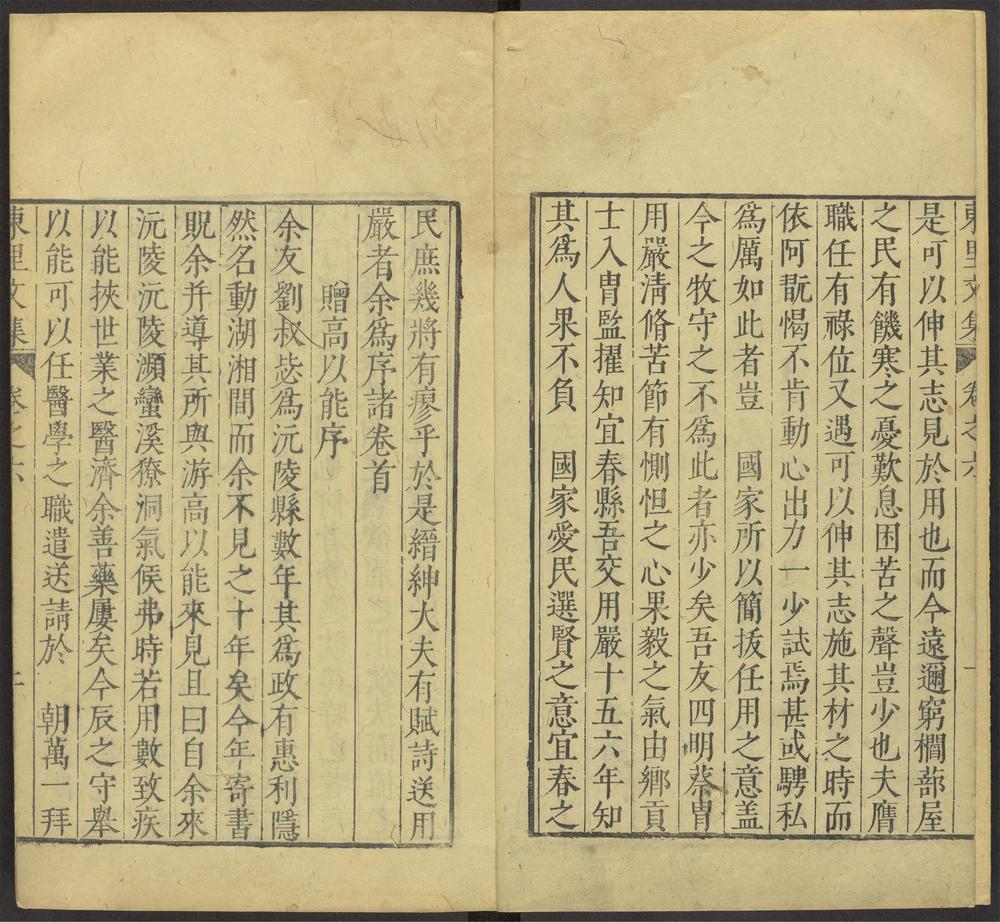 東里文集 卷之六
是可以伸其志見於用也而今遠邇窮櫩蔀屋
之民有饑寒之憂歎息困苦之聲豈少也夫膺
職任有祿位又遇可以伸其志施其材之時而
依阿翫愒不肯動心出力一少試焉甚或騁私
為厲如此者豈 國家所以簡拔任用之意盖
今之牧守之不為此者亦少矣吾友四明蔡冑
用嚴淸脩苦節有惻怛之心果毅之氣由鄉貢
士入胄監擢知宜春縣吾交用嚴十五六年知
其為人果不負 國家愛民選賢之意宜春之
民庶幾將有瘳乎於是縉紳大夫有賦詩送用
嚴者余為序諸卷首
贈高以能序
余友劉叔毖為沅陵縣數年其為政有惠利隱
然名動湖湘間而余不見之十年矣今年寄書
貺余并導其所與游高以能來見且曰自余來
沅陵沅陵瀕蠻溪獠洞氣候弗時若用數致疾
以能挾世業之醫濟余善藥屢矣今辰之守舉
以能可以任醫學之職遣送請於 朝萬一拜
東里文集 卷之六